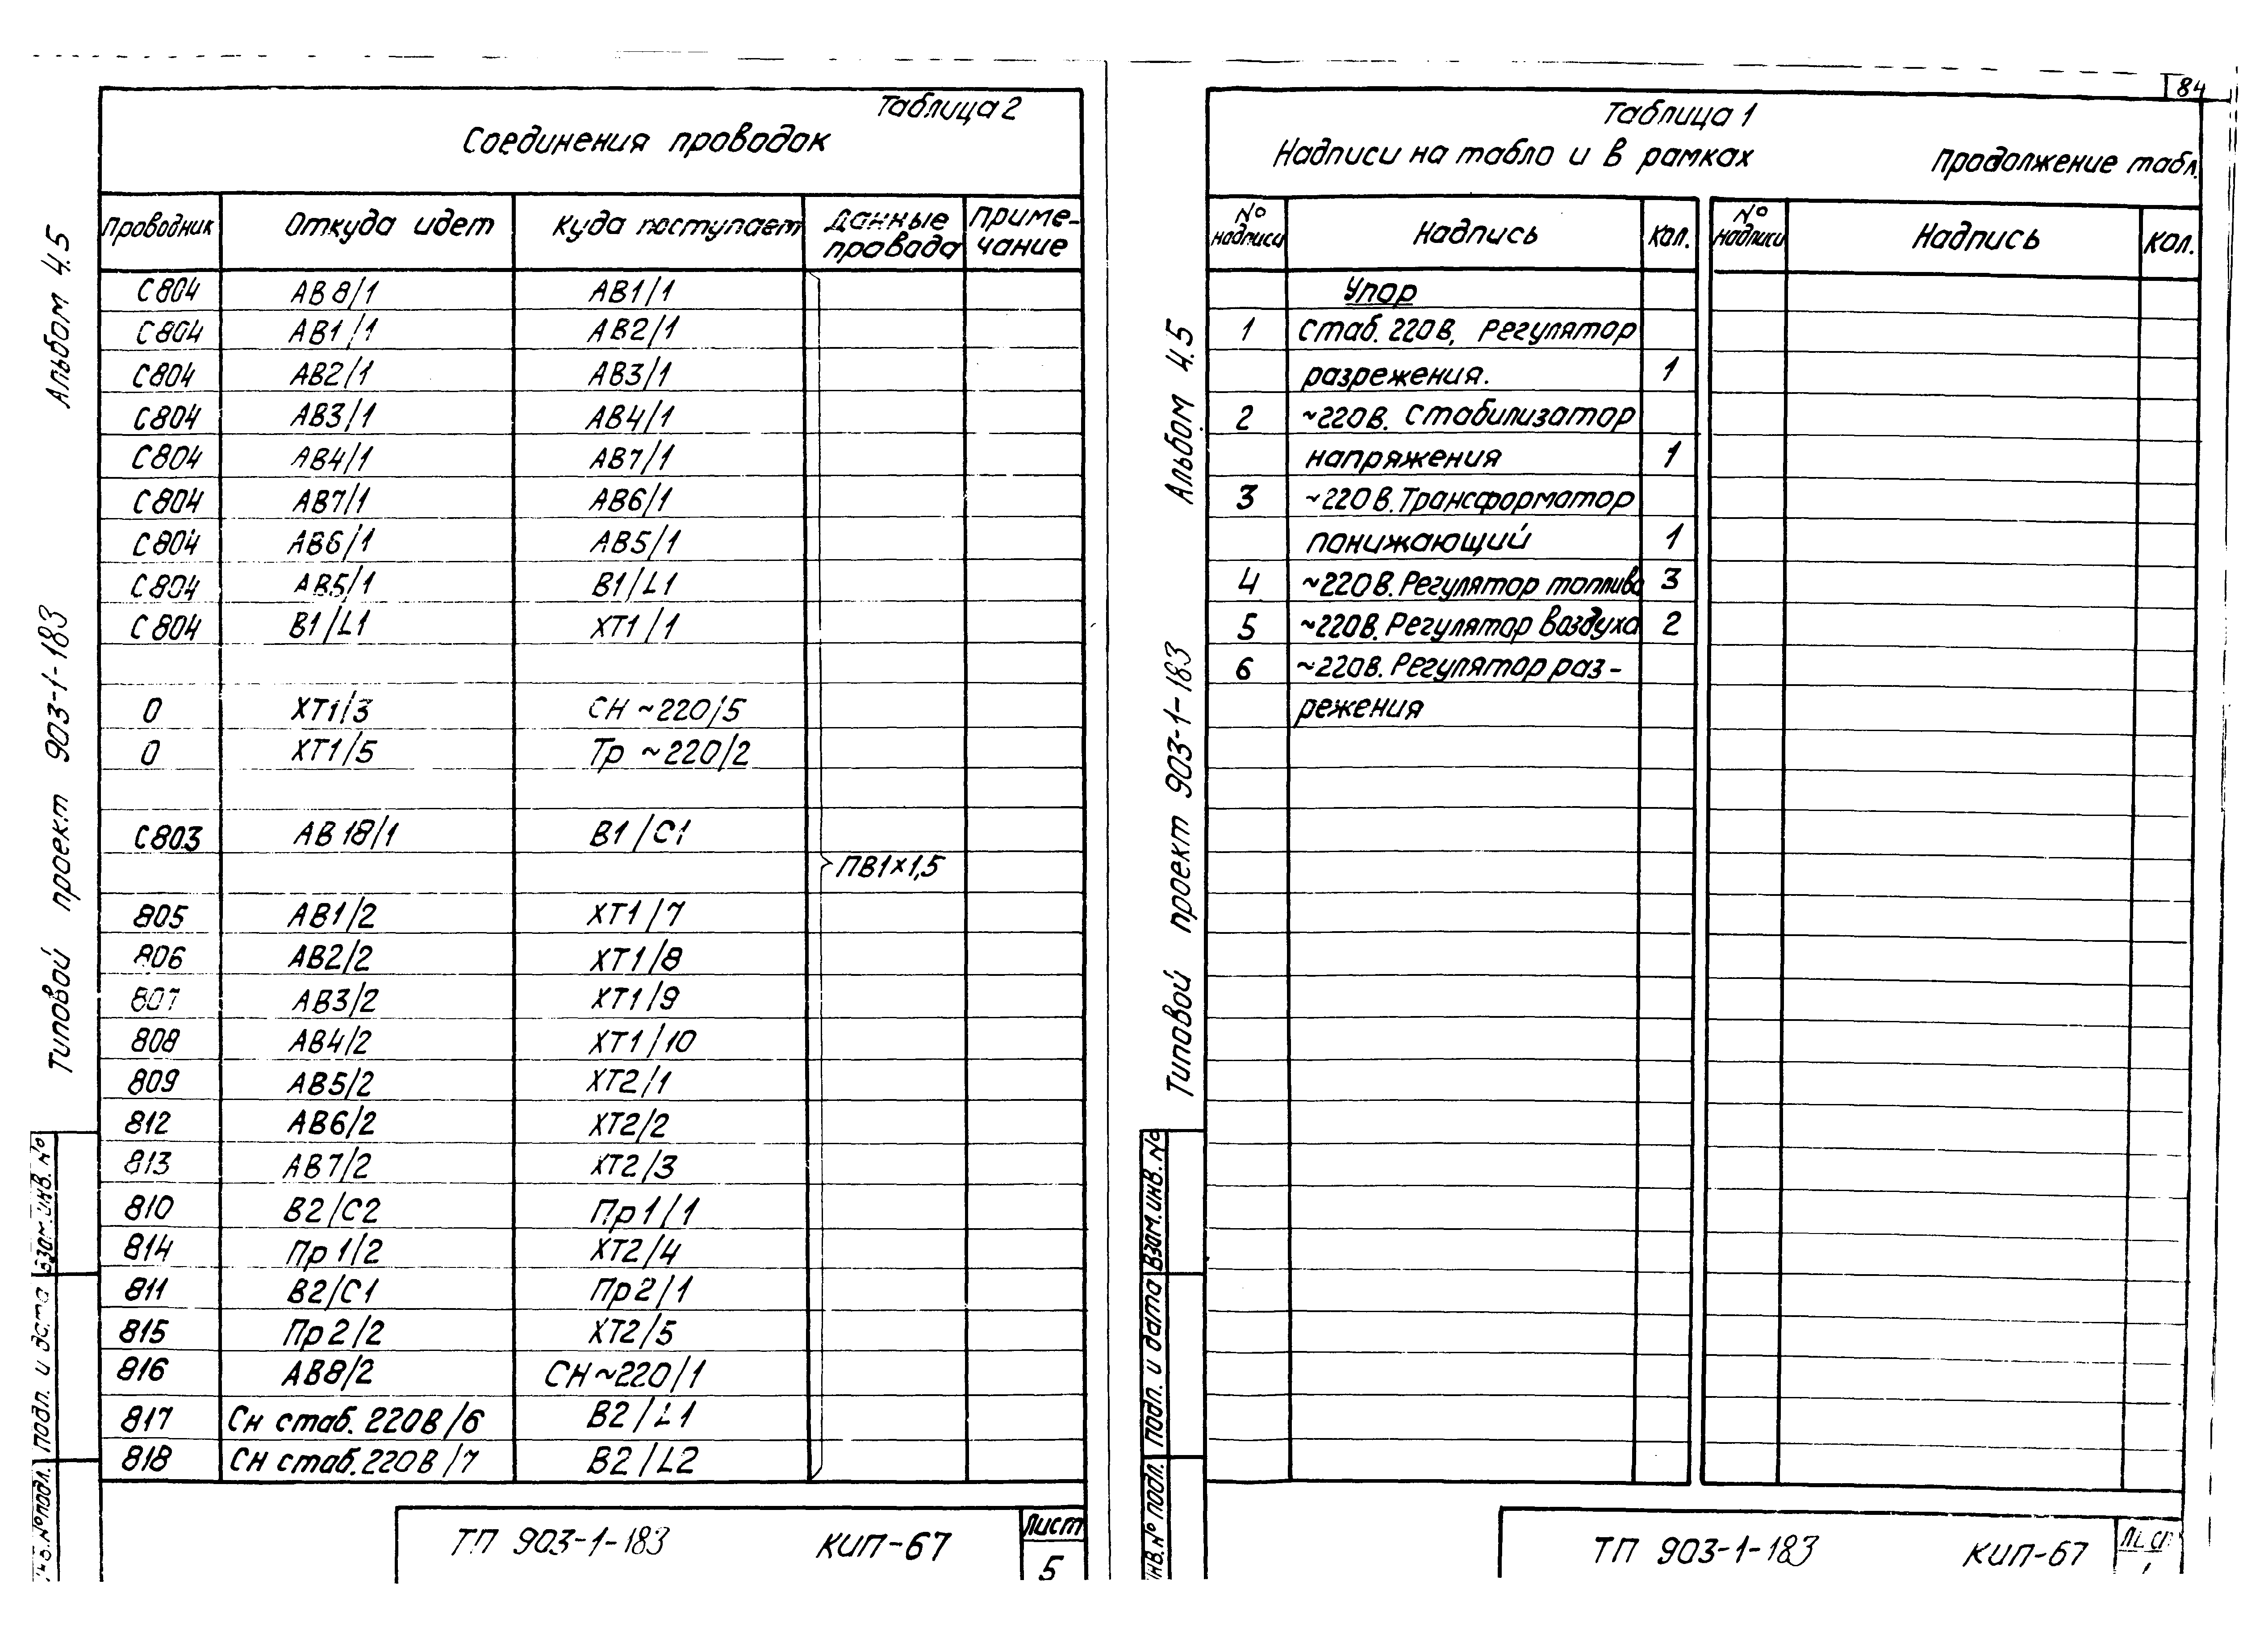 Таблица 2
Соединения проводок
Проводник Откуда идет Куда поступает Данные провода Примечание
С804 АВ8/1 АВ1/1
С804 АВ1/1 АВ2/1
С804 АВ2/1 АВ3/1
С804 АВ3/1 АВ4/1
С804 АВ4/1 АВ7/1
С804 АВ7/1 АВ6/1
С804 АВ6/1 АВ5/1
С804 АВ5/1 В1/L1
С804 В1/L1 ХТ1/1
0 ХТ1/3 СН ~220/5
0 ХТ1/5 Тр ~220/2
С803 АВ18/1 В1/С1
ПВ1х1,5
805 АВ1/2 ХТ1/7
806 АВ2/2 ХТ1/8
807 АВ3/2 ХТ1/9
808 АВ4/2 ХТ1/10
809 АВ5/2 ХТ2/1
812 АВ6/2 ХТ2/2
813 АВ7/2 ХТ2/3
810 В2/С2 Пр1/1
814 Пр1/2 ХТ2/4
811 В2/С1 Пр2/1
815 Пр2/2 ХТ2/5
816 АВ8/2 СН~220/1
817 Сн стаб. 220В/6 В2/L1
818 Сн стаб. 220В/7 В2/L2
ТП 903-1-183 КИП-67 Лист
5
Альбом 4.5
Типовой проект 903-1-183
Взам. инв. №
подл. и дата
№ подл.
84
Таблица 1
Надписи на табло и в рамках Продолжение табл.
№ надписи Надпись Кол. № надписи Надпись Кол.
Упор
1 Стаб. 220В, Регулятор
разрежения. 1
2 ~220В. Стабилизатор
напряжения 1
3 ~220В. Трансформатор
понижающий 1
4 ~220В. Регулятор топлива 3
5 ~220В. Регулятор воздуха 2
6 ~220В. Регулятор раз-
режения
ТП 903-1-183 КИП-67
Альбом 4.5
Типовой проект 903-1-183
Взам. инв. №
Подп. и дата
Инв. № подл.